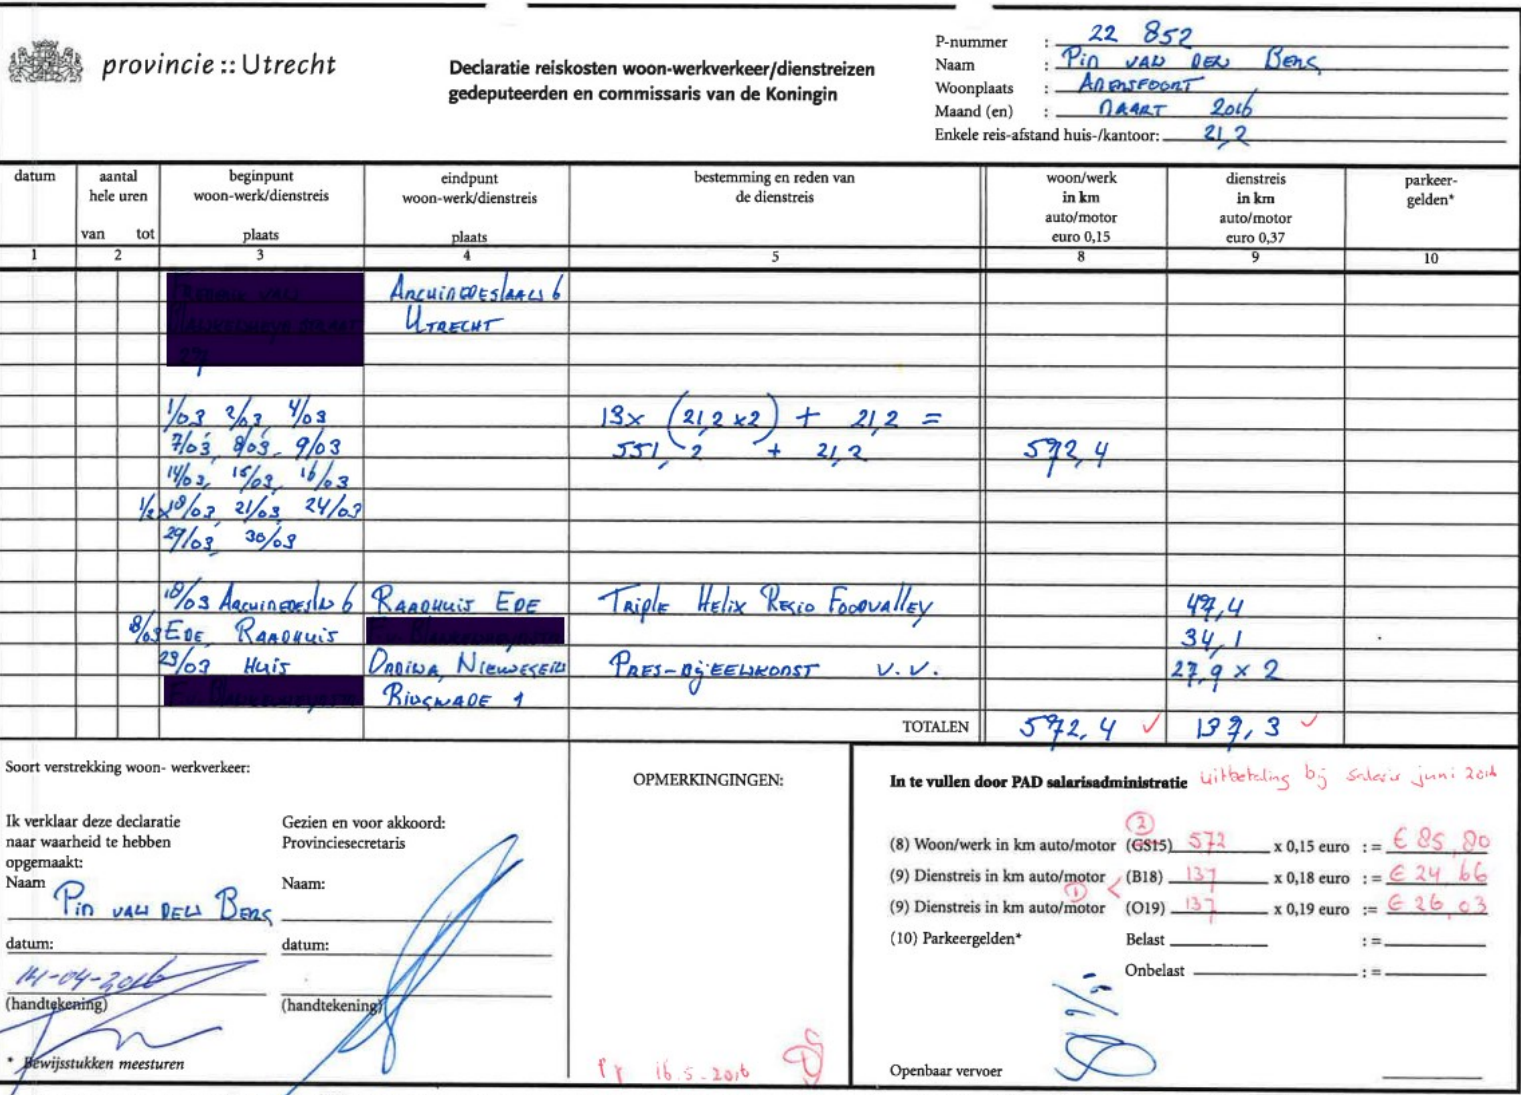 provincie :: Utrecht
Declaratie reiskosten woon-werkverkeer/dienstreizen
gedeputeerden en commissaris van de Koningin
P-nummer : 22 852
Naam : Pim van den Berg
Woonplaats : Amersfoort
Maand (en) : Maart 2016
Enkele reis-afstand huis-/kantoor: 21,2
datum
aantal hele uren
van tot
beginpunt woon-werk/dienstreis
plaats
eindpunt woon-werk/dienstreis
plaats
bestemming en reden van de dienstreis
woon/werk in km auto/motor euro 0,15
dienstreis in km auto/motor euro 0,37
parkeer-gelden*
1 2 3 4 5 8 9 10
Archimedeslaan 6
Utrecht
1/03 2/03, 4/03 13x (21,2 x2) + 21,2 =
7/03, 8/03, 9/03 551,2 + 21,2 572,4
14/03, 15/03, 16/03
1/2x 18/03, 21/03, 24/03
29/03, 30/03
18/03 Archimedesln 6 Raadhuis Ede Triple Helix Regio Foodvalley 47,4
18/03 Ede, Raadhuis 34,1
23/03 Huis Ordina, Nieuwegein Pres-bijeenkomst v.v. 27,9 x 2
Ringwade 1
TOTALEN 572,4 137,3
Soort verstrekking woon- werkverkeer:
Ik verklaar deze declaratie
naar waarheid te hebben
opgemaakt:
Naam
Pim van den Berg
datum:
14-04-2016
(handtekening)
* Bewijsstukken meesturen
Gezien en voor akkoord:
Provinciesecretaris
Naam:
datum:
(handtekening)
OPMERKINGINGEN:
16.5.2016
In te vullen door PAD salarisadministratie uitbetaling bij salaris juni 2016
2
(8) Woon/werk in km auto/motor (GS15) 572 x 0,15 euro : = € 85,80
(9) Dienstreis in km auto/motor (B18) 137 x 0,18 euro : = € 24,66
1
(9) Dienstreis in km auto/motor (O19) 137 x 0,19 euro := € 26,03
(10) Parkeergelden* Belast : =
Onbelast : =
Openbaar vervoer